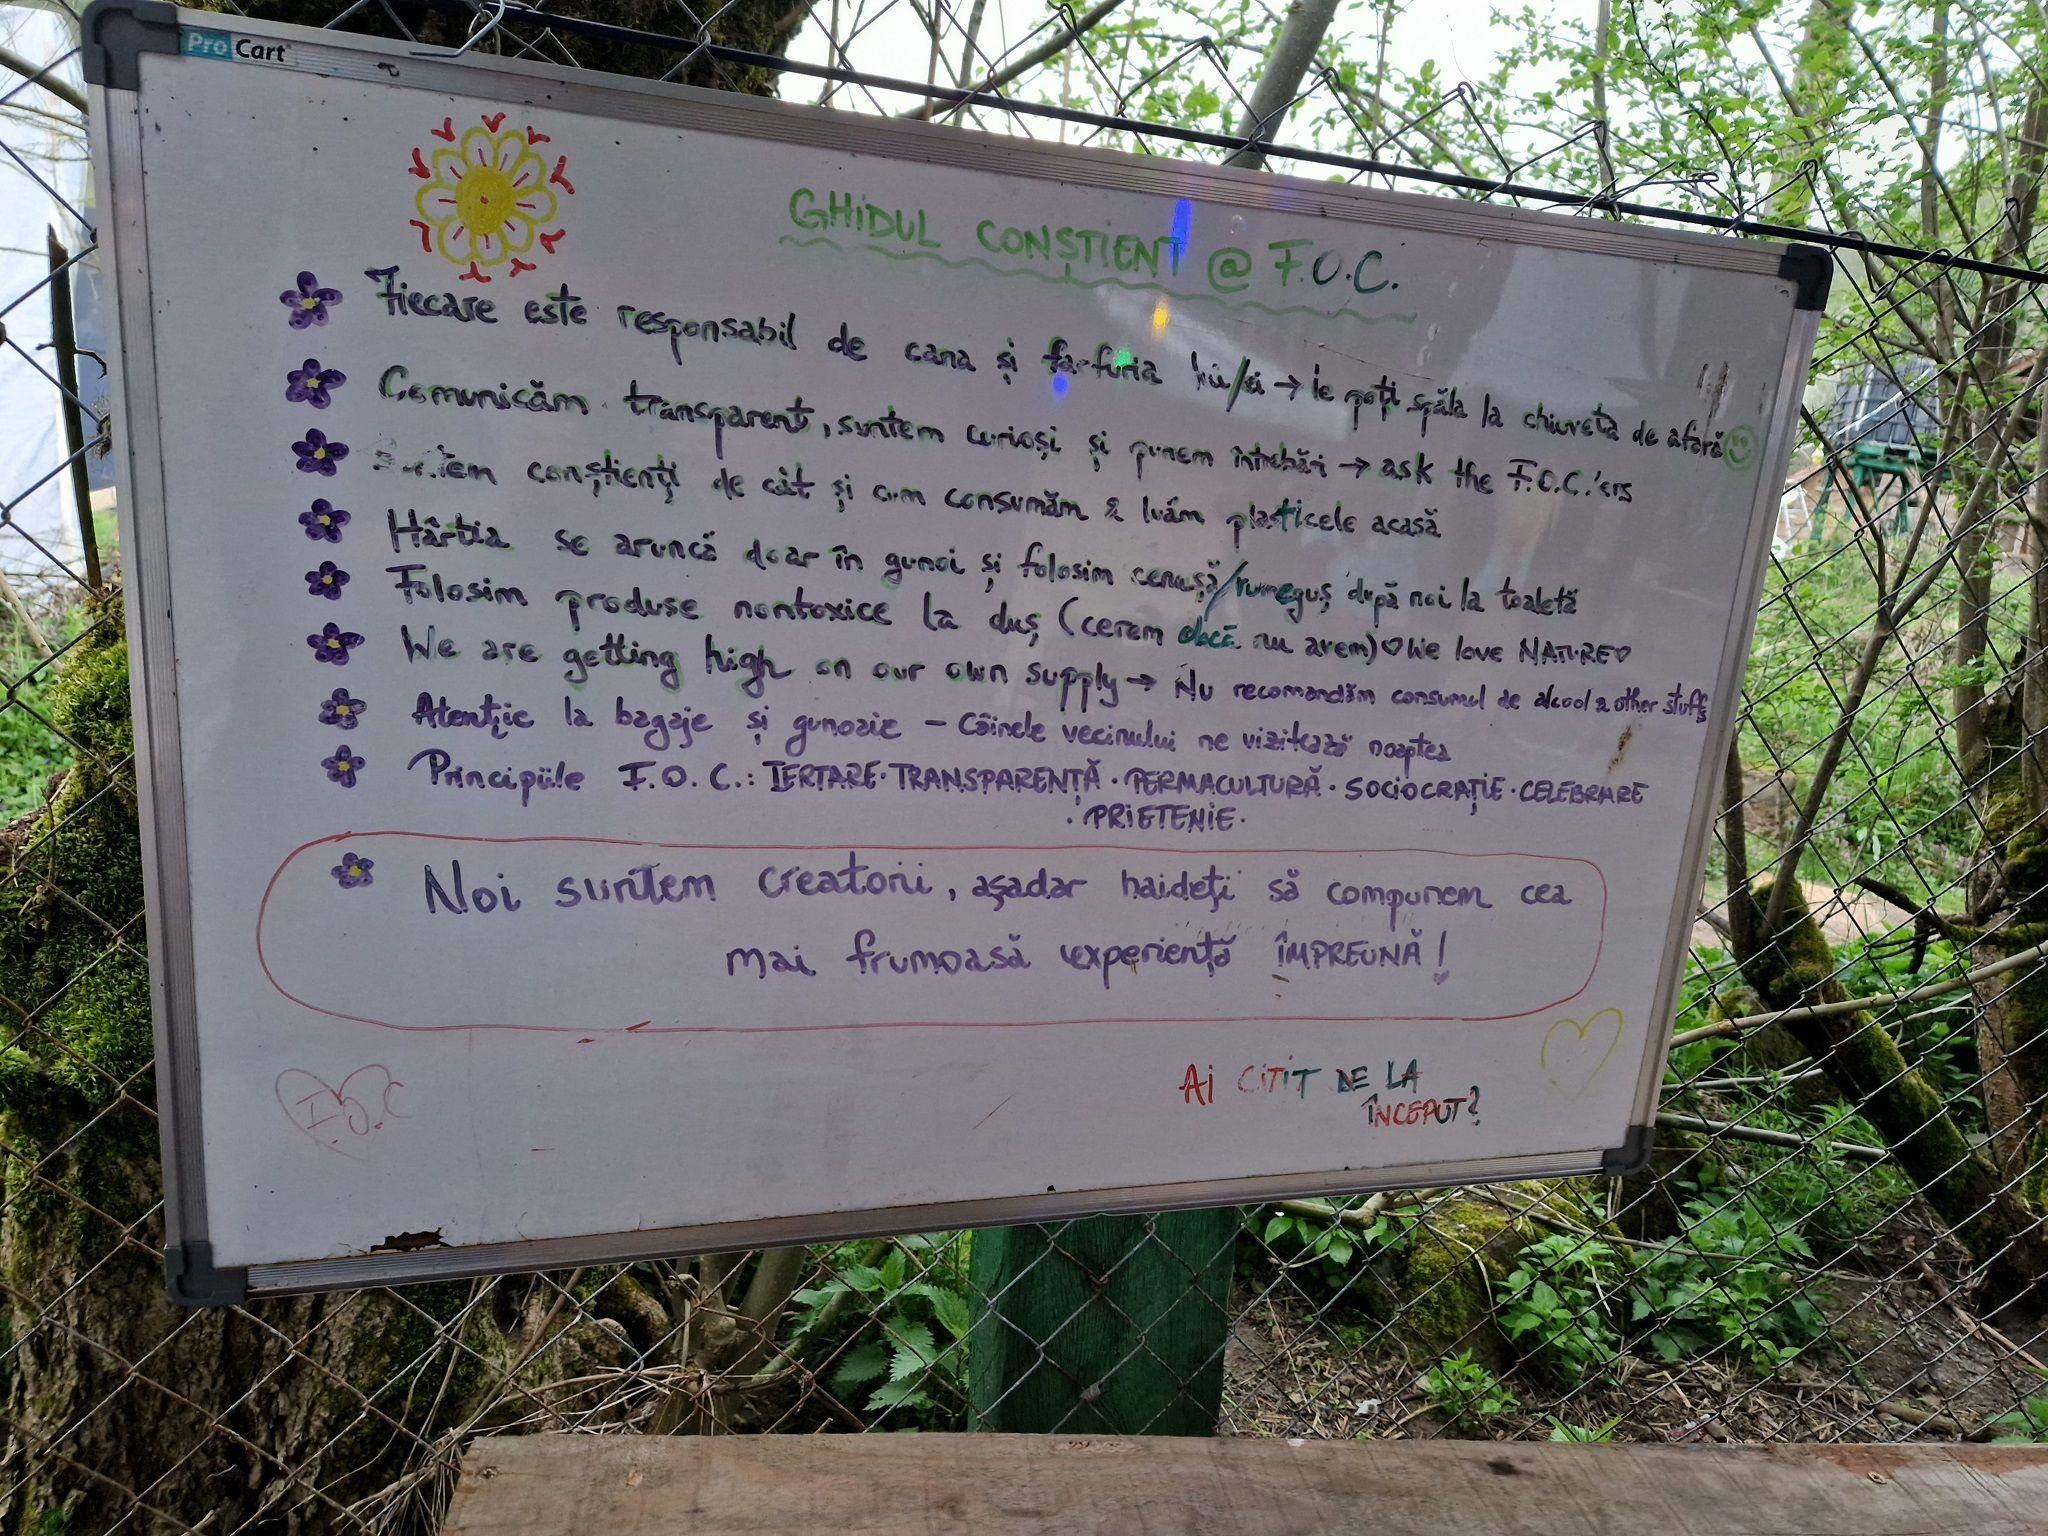 Pro Cart
GHIDUL CONȘTIENT @ F.O.C.
Fiecare este responsabil de cana și farfuria lui/ei → le poți spăla la chiuveta de afară
Comunicăm transparent, suntem curioși și punem întrebări → ask the F.O.C.'ers
conștienți de cât și cum consumăm & luăm plasticele acasă
Hârtia se aruncă doar în gunoi și folosim cenușă/rumeguș după noi la toaletă
Folosim produse nontoxice la duș (cerem dacă nu avem) ♡ We love NATURE ♡
We are getting high on our own supply → Nu recomandăm consumul de alcool & other stuffs
Atenție la bagaje și gunoaie - Câinele vecinului ne vizitează noaptea
Principiile F.O.C.: IERTARE · TRANSPARENȚĂ · PERMACULTURĂ · SOCIOCRAȚIE · CELEBRARE
· PRIETENIE ·
Noi suntem creatorii, așadar haideți să compunem cea
mai frumoasă experiență ÎMPREUNĂ!
F.O.C
Ai CITIT DE LA
ÎNCEPUT?